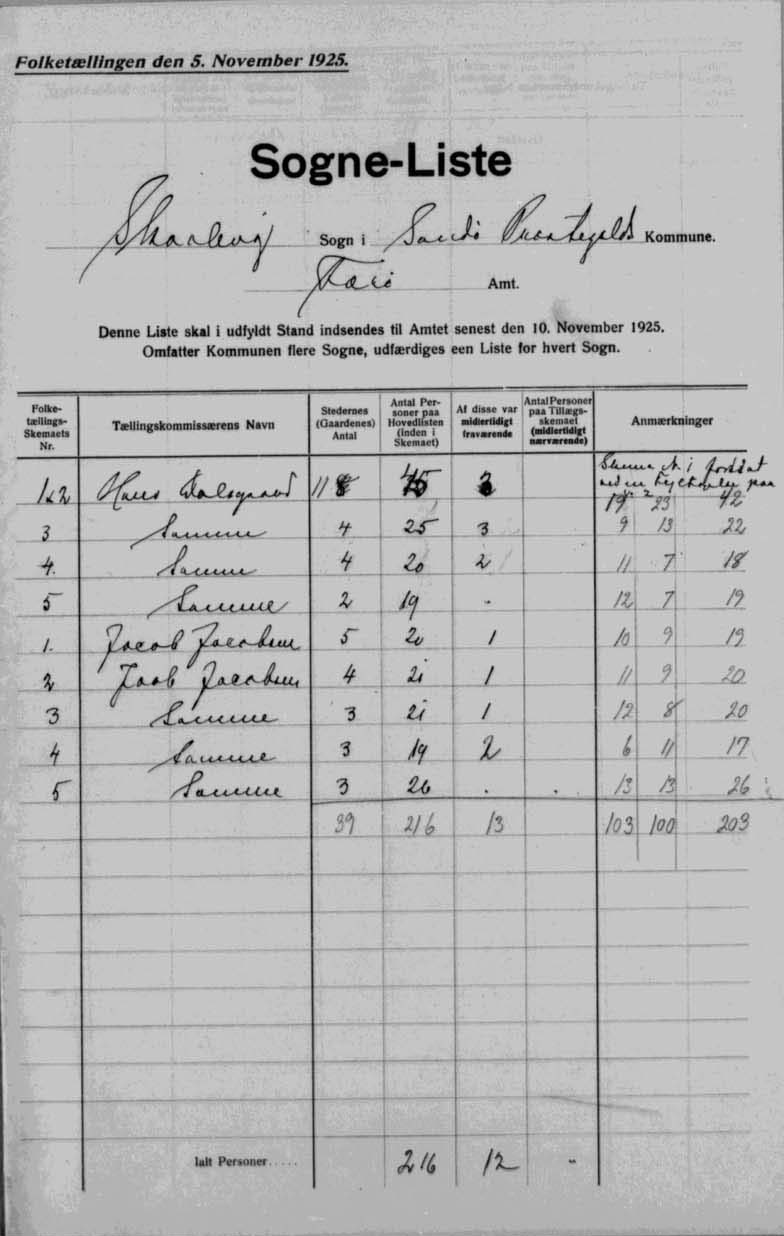 Folketællingen den 5. November 1925.
Sogne-Liste
Skaalevig Sogn i Sandø Præstegjelds Kommune.
Færø Amt.
Denne Liste skal i udfyldt Stand indsendes til Amtet senest den 10. November 1925.
Omfatter Kommunen flere Sogne, udfærdiges een Liste for hvert Sogn.
Folke-tællings-Skemaets Nr. Tællingskommissærens Navn Stedernes (Gaardenes) Antal Antal Personer paa Hovedlisten (inden i Skemaet) Af disse var midlertidigt fraværende Antal Personer paa Tillægsskemaet (midlertidigt nærværende) Anmærkninger
1&2 Hans Dalsgaard 11 45 3 19 23 42
3 Samme 4 25 3 9 13 22
4. Samme 4 20 2 11 7 18
5 Samme 2 19 - 12 7 19
1. Jacob Jacobsen 5 20 1 10 9 19
2 Jacob Jacobsen 4 21 1 11 9 20
3 Samme 3 21 1 12 8 20
4 Samme 3 19 2 6 11 17
5 Samme 3 26 . . 13 13 26
39 216 13 103 100 203
Ialt Personer..... 216 12 -